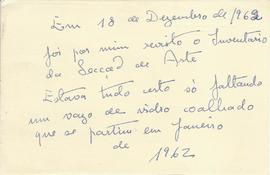 Em 18 de Dezembro de 1962
foi por mim revisto o Inventario
da Secção de Arte
Estava tudo certo só faltando
um vaso de vidro coalhado
que se partiu em Janeiro
de
1962